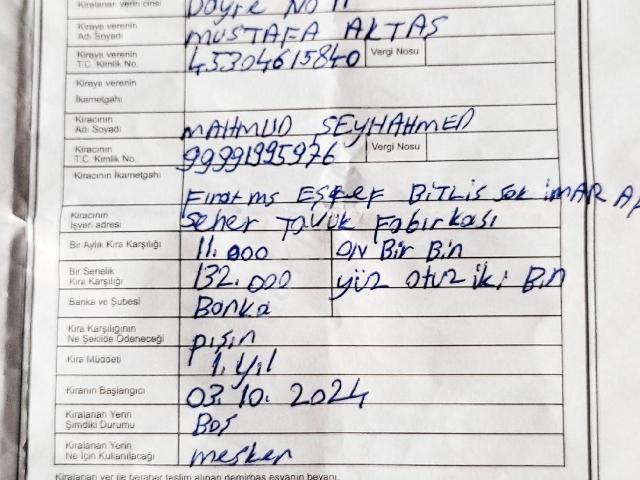 Kiralanan yerin cinsi Dayre No 11
Kiraya verenin Adı Soyadı MUSTAFA AKTAŞ
Kiraya verenin T.C. Kimlik No. 45304615840 Vergi Nosu
Kiraya verenin İkametgahı
Kiracının Adı Soyadı MAHMUD SEYHAHMED
Kiracının T.C. Kimlik No. 99991995976 Vergi Nosu
Kiracının İkametgahı Fırat ms EŞREF BİTLİS Sok İMAR
Kiracının İşyeri adresi Seher Tavuk Fabırkası
Bir Aylık Kira Karşılığı 11.000 ON Bir Bin
Bir Senelik Kira Karşılığı 132.000 yüz otuz iki Bin
Banka ve Şubesi Banka
Kira Karşılığının Ne Şekilde Ödeneceği pışın
Kira Müddeti 1.yıl
Kiranın Başlangıcı 03.10.2024
Kiralanan Yerin Şimdiki Durumu Boş
Kiralanan Yerin Ne İçin Kullanılacağı mesken
Kiralanan yer ile beraber teslim alınan demirbaş eşyanın beyanı